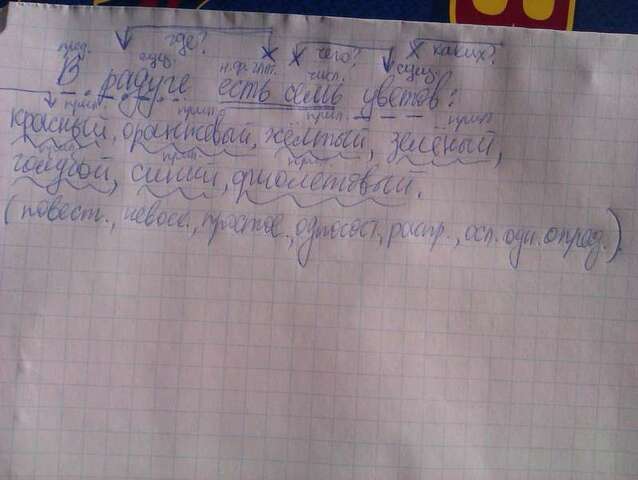 где? чего? каких?
пред. сущ. н.ф.гл. числ. сущ.
В радуге есть семь цветов:
прил. прил. прил. прил.
красный, оранжевый, жёлтый, зелёный,
прил. прил. прил.
голубой, синий, фиолетовый.
(повест., невоскл., простое, односост., распр., осл. одн. опред.)